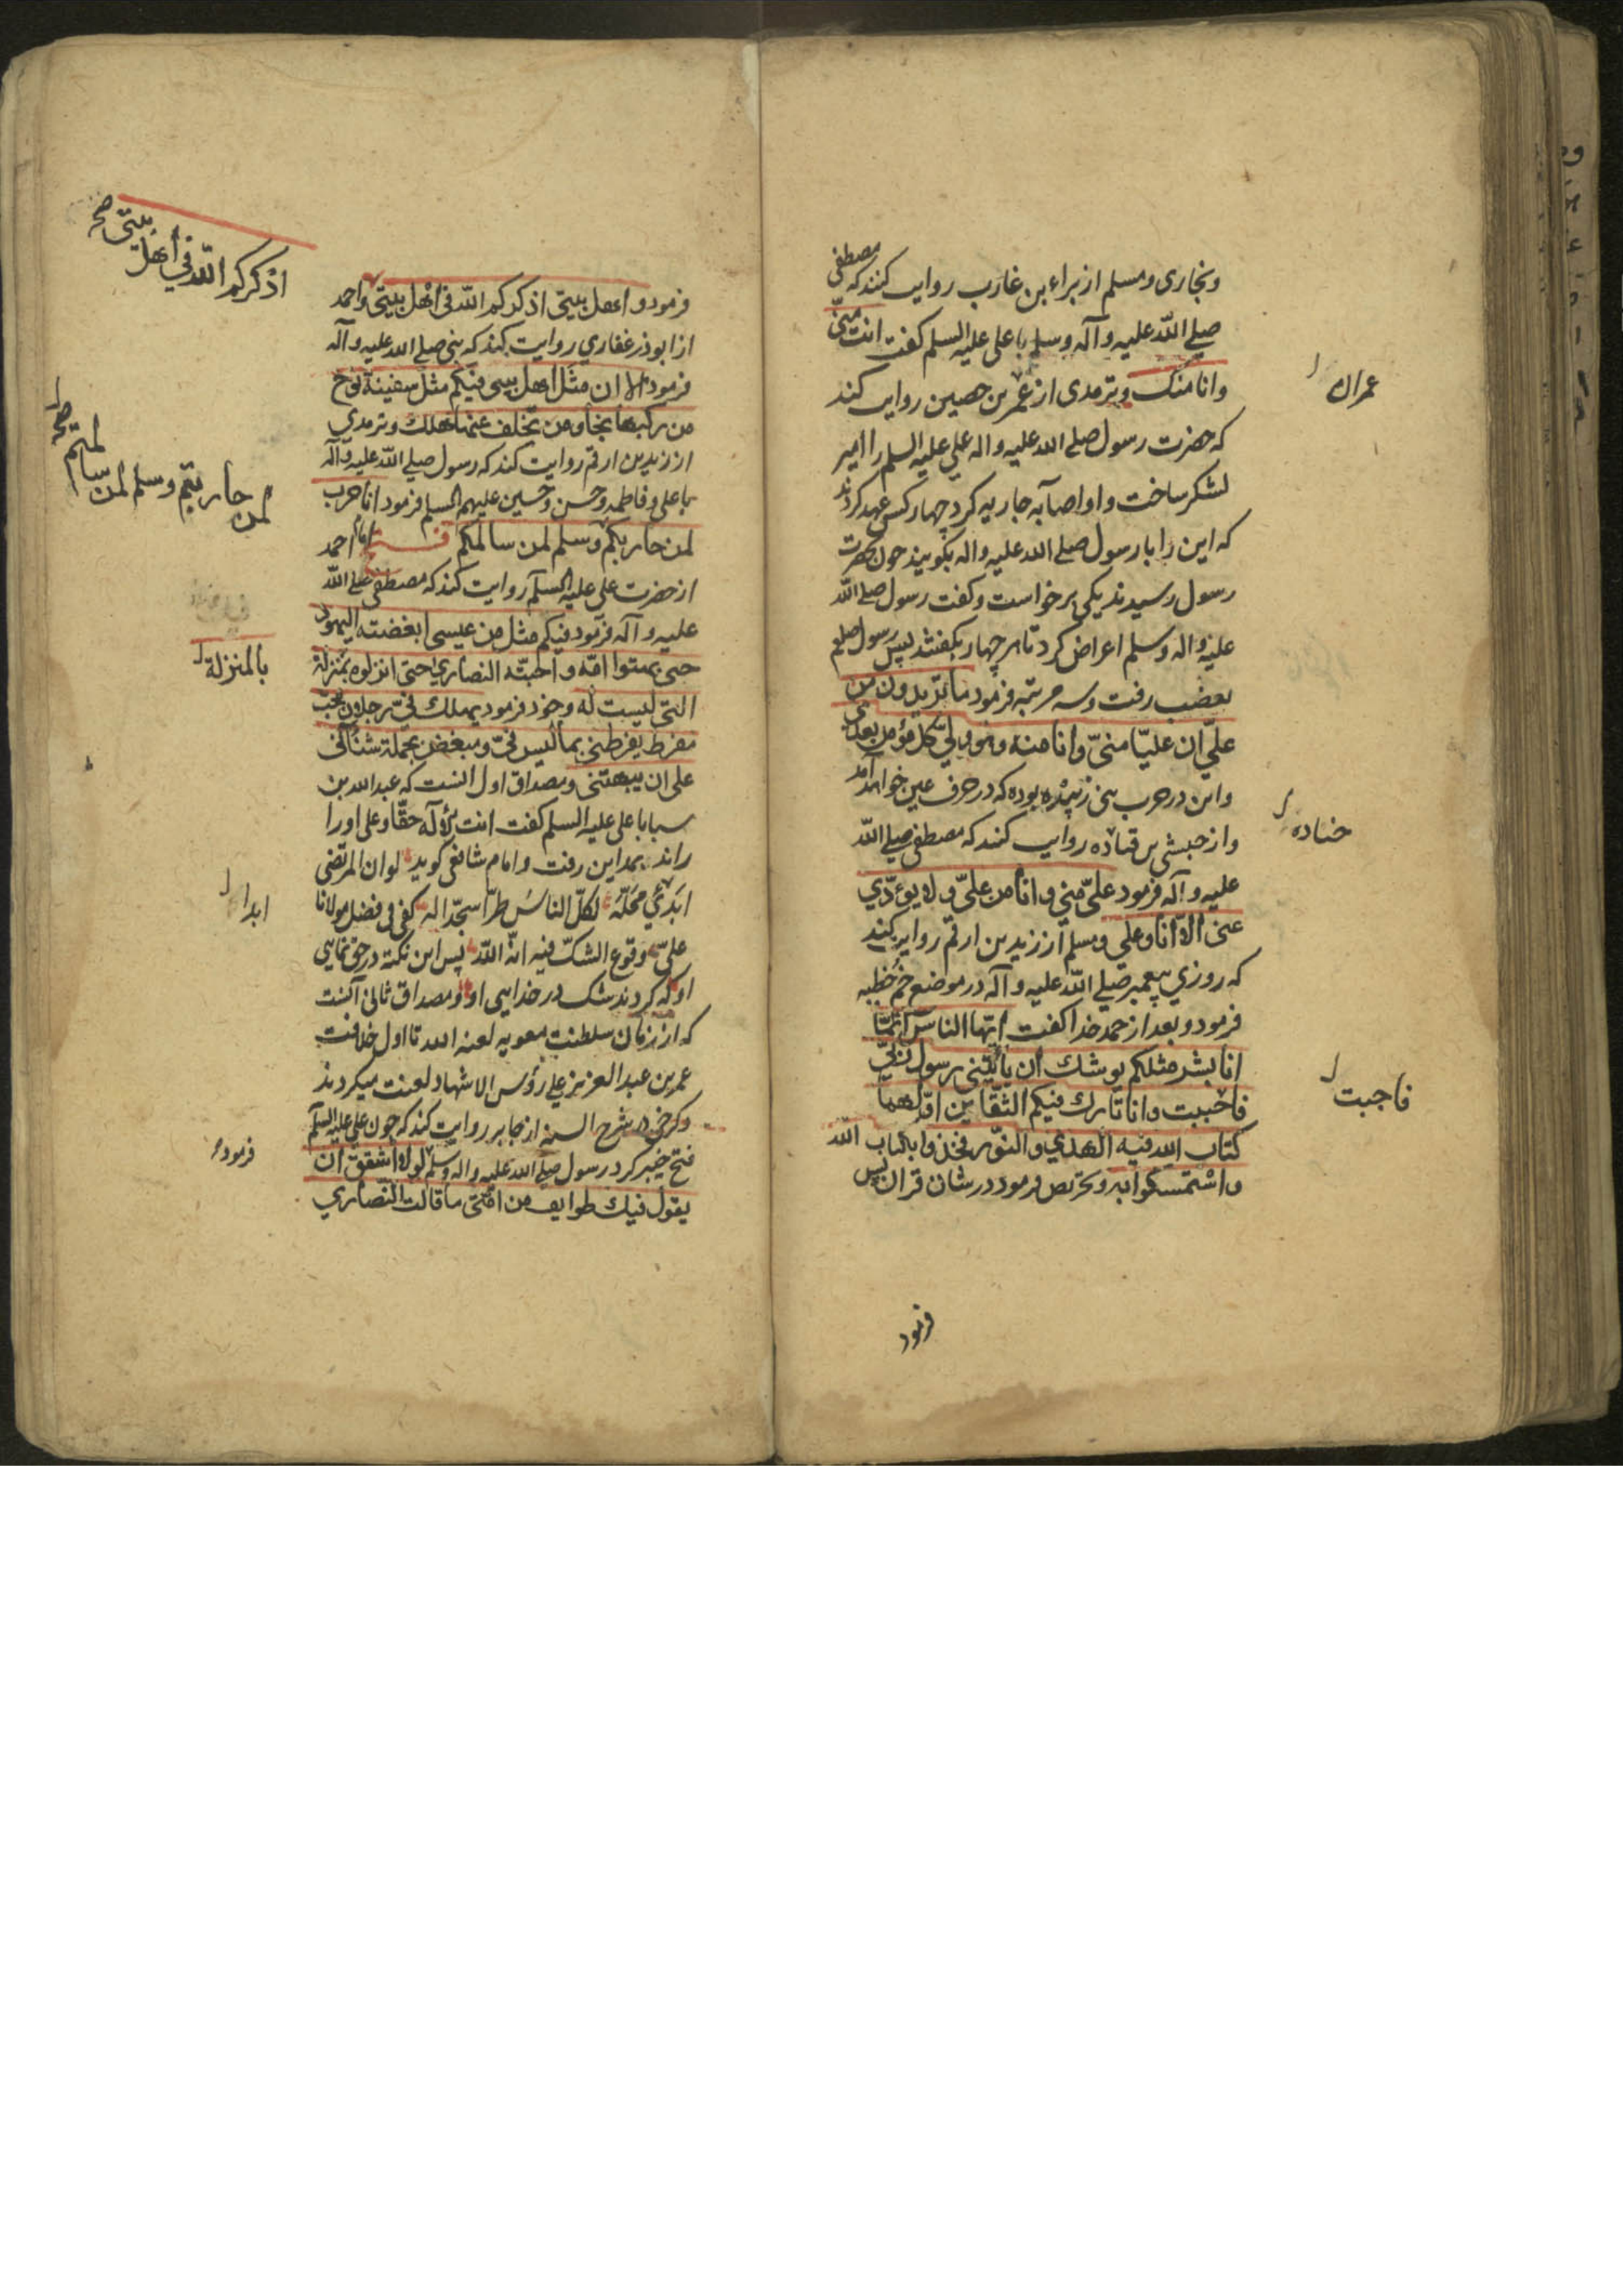 وبخاری ومسلم از براء بن غازب روایت کنند که مصطفی
صلی الله علیه وآله وسلم با علی علیه السلم کفت انت منی
وانا منک وترمدی از عمر بن حصین روایت کند
عمران
که حضرت رسول صلی الله علیه واله علی علیه السلم را امیر
لشکر ساخت واو اصابه جاریه کرد چهار کس عهد کردند
که این را با رسول صلی الله علیه واله بکویند چون بحضرت
رسول رسیدند یکی برخواست وکفت رسول صلی الله
علیه واله وسلم اعراض کرد تا هر چهار بکفتند پس رسول صلعم
بغضب رفت وسه مرتبه فرمود ما تریدون من
علی ان علیا منی وانا منه وهو ولی کل مؤمن بعدی
واین در حرب بنی زبیده بوده که در حرف عین خواهد آمد
واز حبشی بن قتاده روایت کنند که مصطفی صلی الله
جناده
علیه وآله فرمود علی منی وانا من علی ولا یؤدی
عنی الا انا وعلی ومسلم از زید بن ارقم روایت کند
که روزی پیغمبر صلی الله علیه وآله در موضع خم خطبه
فرمود وبعد از حمد خدا کفت ایها الناس انما
انا بشر مثلکم یوشک ان یأتینی رسول ربی
فاحببت وانا تارک فیکم الثقلین اولهما
فاجبت
کتاب الله فیه الهدی والنور فخذوا بکتاب الله
واستمسکوا به وتحریص فرمود در شان قران پس
فرمود
فرمود واهل بیتی اذکرکم الله فی اهل بیتی واحمد
اذکرکم الله فی اهل بیتی صح
از ابوذر غفاری روایت کند که نبی صلی الله علیه وآله
فرمود الا ان مثل اهل بیتی فیکم مثل سفینة نوح
من رکبها نجا ومن تخلف عنها هلک وترمدی
از زید بن ارقم روایت کند که رسول صلی الله علیه وآله
با علی وفاطمه وحسن وحسین علیهم السلم فرمود انا حرب
لمن حاربتم وسلم لمن سالمتم صح
لمن حاربکم وسلم لمن سالمکم امام احمد
از حضرت علی علیه السلم روایت کند که مصطفی صلی الله
علیه وآله فرمود فیکم مثل من عیسی ابغضته الیهود
حتی بهتوا امه واحبته النصاری حتی انزلوه بمنزلة
بالمنزلة
التی لیست له وخود فرمود یهلک فی رجلان محب
مفرط یفرطنی بما لیس فی ومبغض یحمله شنآنی
علی ان یبهتنی ومصداق اول انست که عبد الله بن
سبا با علی علیه السلم کفت انت الآله حقا وعلی او را
راند بمداین رفت وامام شافعی کوید لو ان المرتضی
ابدی محله لکل الناس طرا سجدا له کفی فی فضل مولانا
ابدا
علی وقوع الشک فیه انه الله پس این نکته در حق نمایی
او که کردند شک در خدایی او ومصداق ثانی آنست
که از زمان سلطنت معویه لعنه الله تا اول خلافت
عمر بن عبد العزیز علی رؤس الاشهاد لعنت میکردند
وکرخی در شرح السنه از جابر روایت کند که چون علی علیه السلم
فتح خیبر کرد رسول صلی الله علیه واله وسلم لولا اشفق ان
فرموده
یقول فیک طوایف من امتی ما قالت النصاری